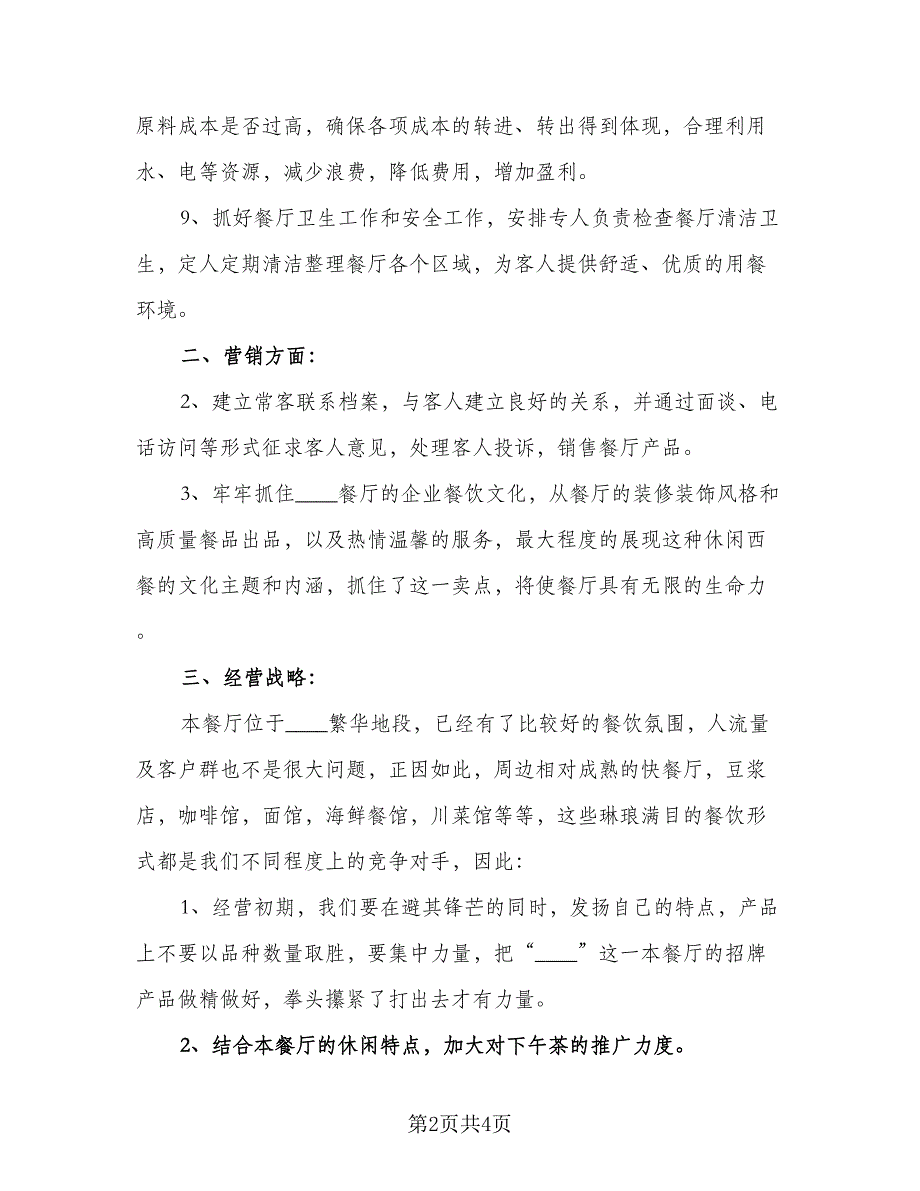 原料成本是否过高，确保各项成本的转进、转出得到体现，合理利用
水、电等资源，减少浪费，降低费用，增加盈利。
9、抓好餐厅卫生工作和安全工作，安排专人负责检查餐厅清洁卫
生，定人定期清洁整理餐厅各个区域，为客人提供舒适、优质的用餐
环境。
二、营销方面：
2、建立常客联系档案，与客人建立良好的关系，并通过面谈、电
话访问等形式征求客人意见，处理客人投诉，销售餐厅产品。
3、牢牢抓住____餐厅的企业餐饮文化，从餐厅的装修装饰风格和
高质量餐品出品，以及热情温馨的服务，最大程度的展现这种休闲西
餐的文化主题和内涵，抓住了这一卖点，将使餐厅具有无限的生命力
。
三、经营战略：
本餐厅位于____繁华地段，已经有了比较好的餐饮氛围，人流量
及客户群也不是很大问题，正因如此，周边相对成熟的快餐厅，豆浆
店，咖啡馆，面馆，海鲜餐馆，川菜馆等等，这些琳琅满目的餐饮形
式都是我们不同程度上的竞争对手，因此：
1、经营初期，我们要在避其锋芒的同时，发扬自己的特点，产品
上不要以品种数量取胜，要集中力量，把“____”这一本餐厅的招牌
产品做精做好，拳头攥紧了打出去才有力量。
2、结合本餐厅的休闲特点，加大对下午茶的推广力度。
第2页共4页